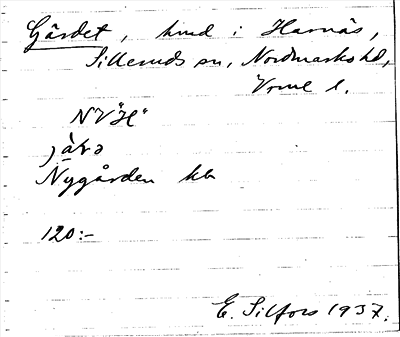 Gärdet, hmd i Harnäs,
Silleruds sn, Nordmarks hd,
Vrml l.
NV "H"
Nygården kb
120:-
E. Silfors 1937.